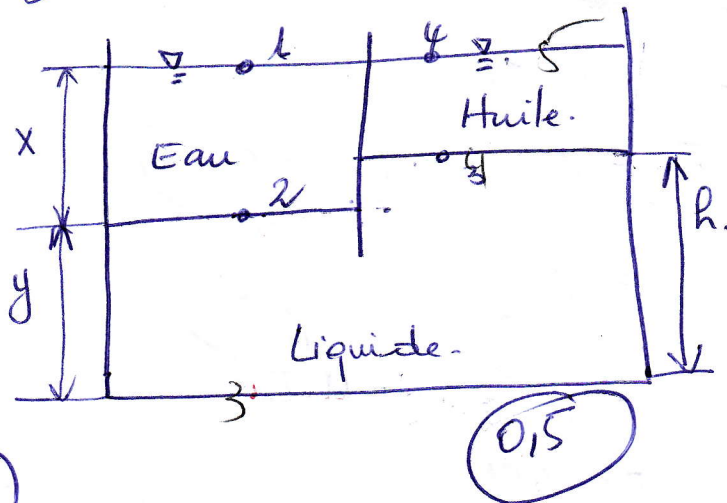 1 4 5
x Eau Huile.
2 3 h.
y
Liquide.
3
0,5